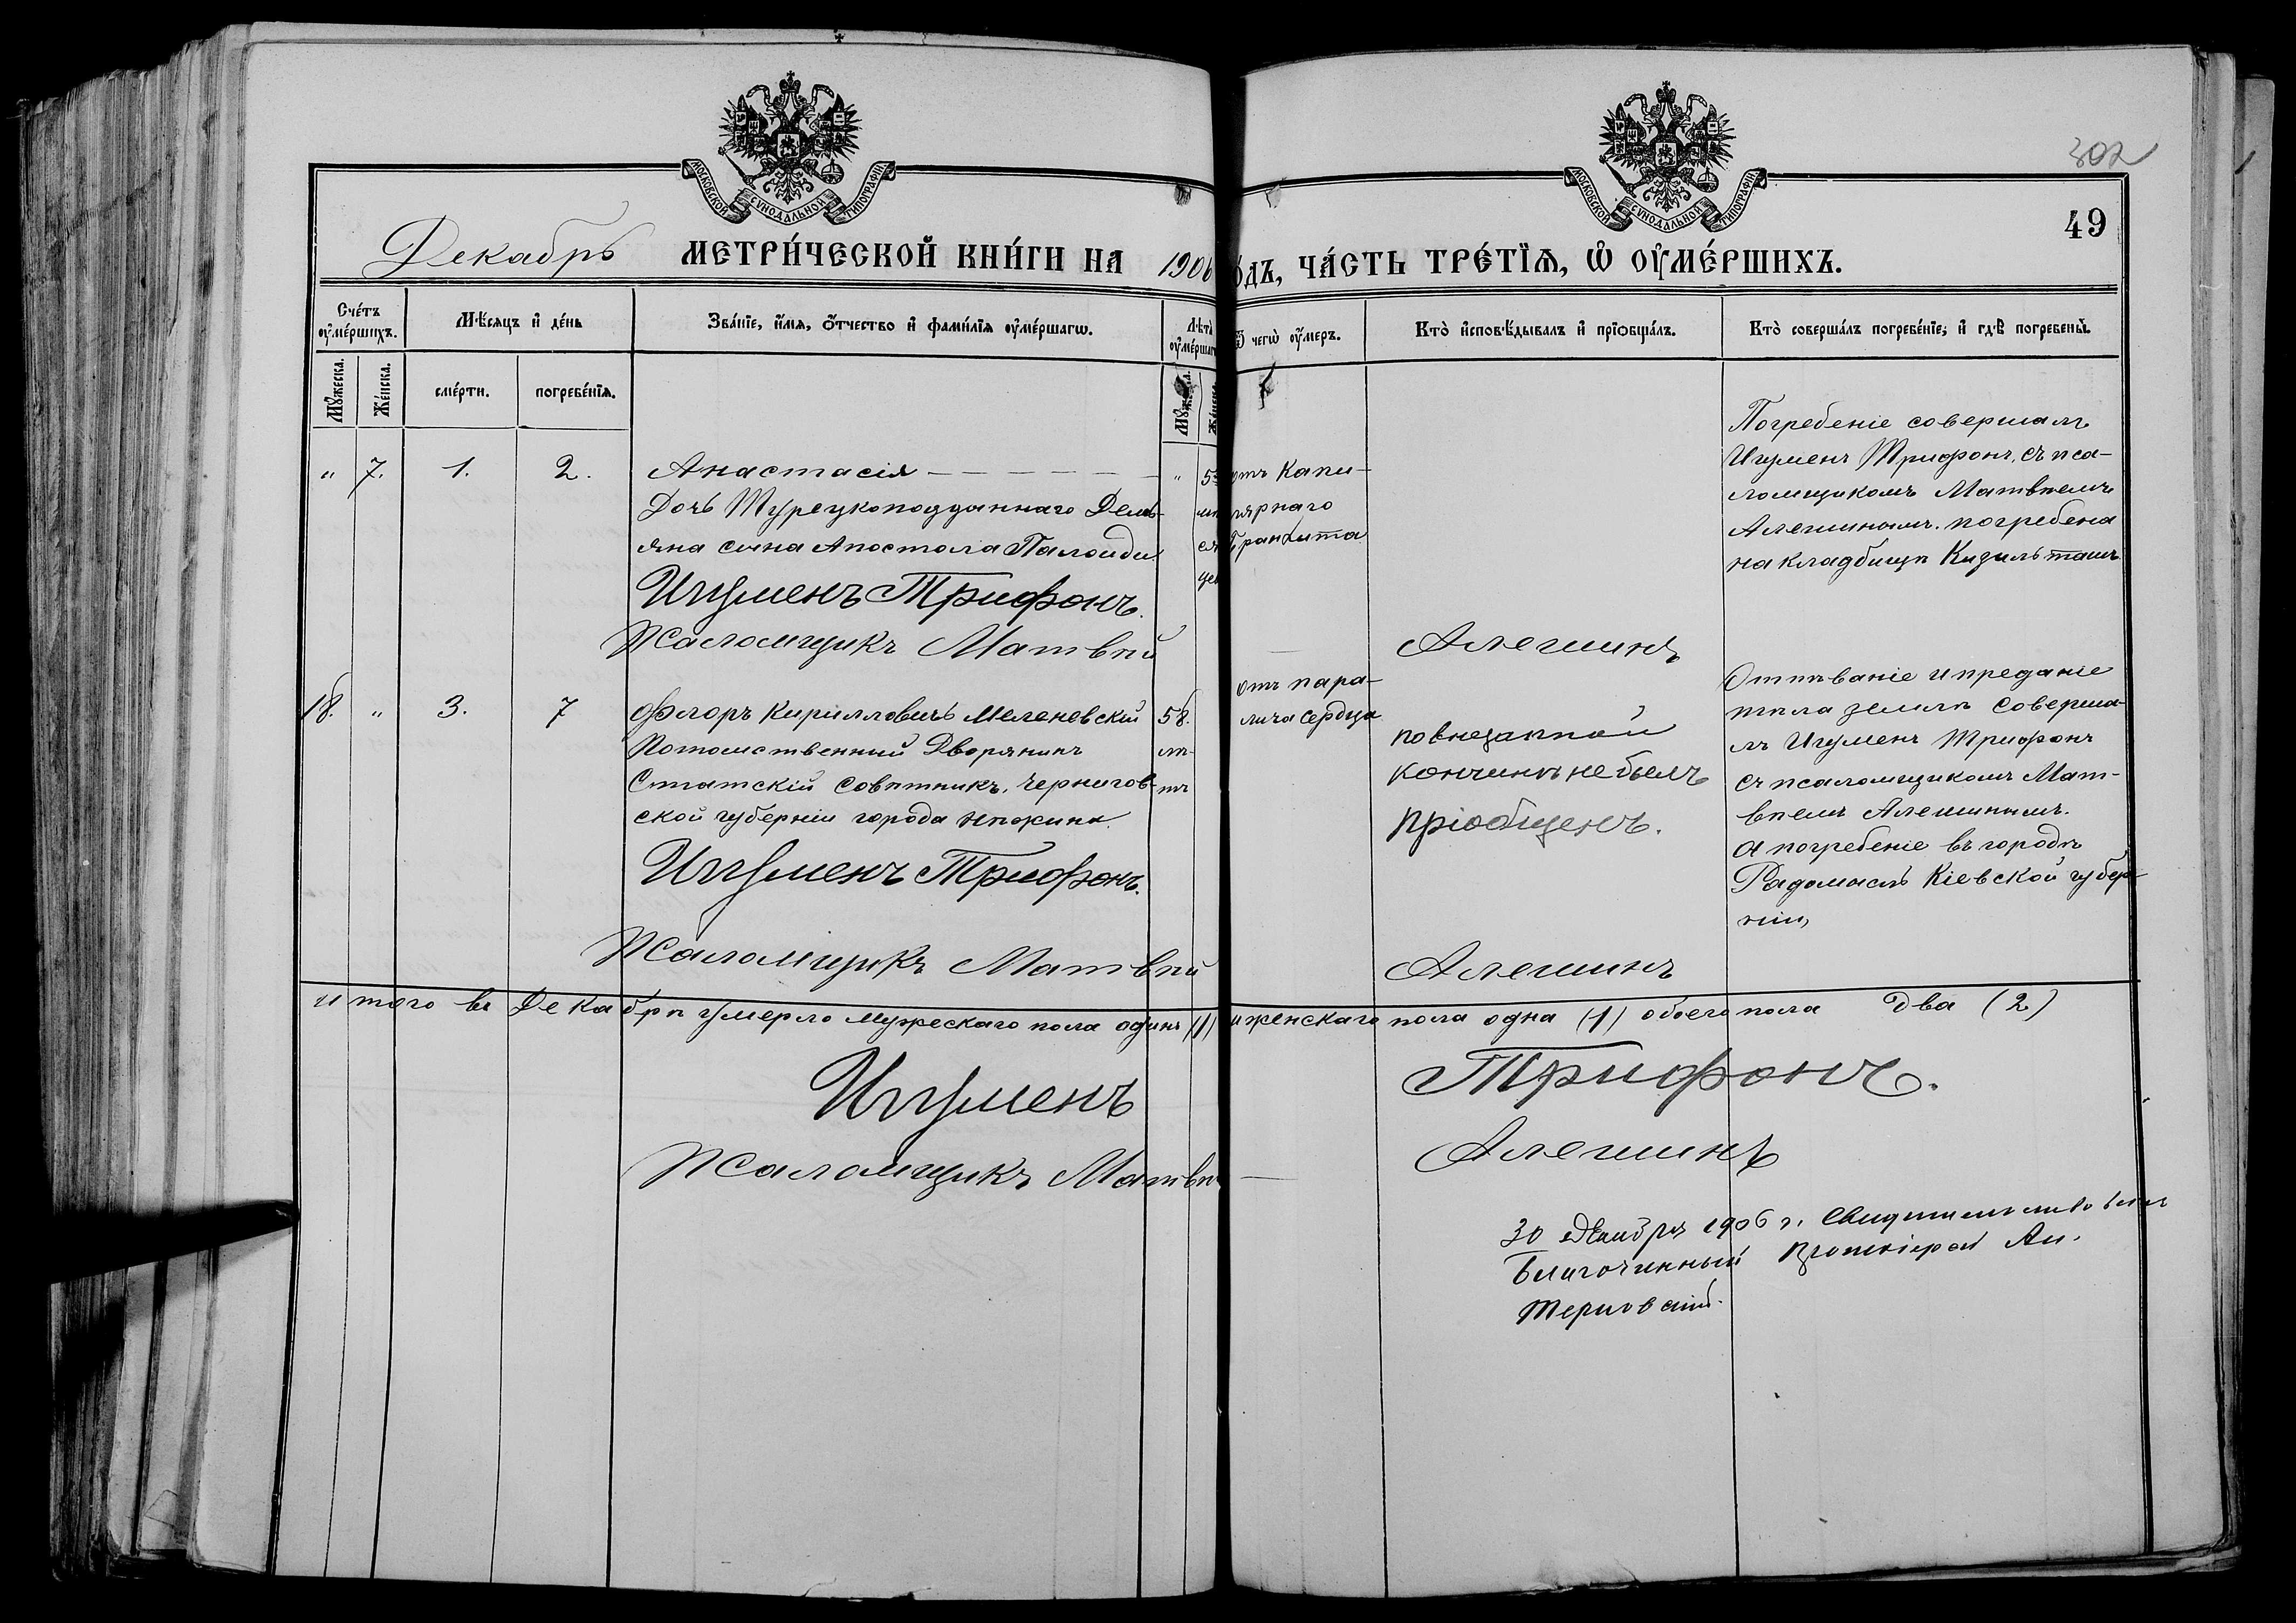 МОСКОВСКОЙ СУНОДАЛЬНОЙ ТИПОГРАФІИ
МОСКОВСКОЙ СУНОДАЛЬНОЙ ТИПОГРАФІИ
302
49
Декабрь МЕТРИ́ЧЕСКОЙ КНИ́ГИ НА 1906
О́ДЪ, ЧА́СТЬ ТРЕ́ТЇѦ, Ѡ҆ ОУ҆МЕ́РШИХЪ.
Сче́тъ оу҆ме́ршихъ.
Мѣ́сяцъ и҆ де́нь
Зва́нїе, и҆́мя, ѻ҆́тчество и҆ фами́лїя оу҆ме́ршагѡ.
Лѣ́та оу҆ме́ршаг
Ѿ чегѡ̀ оу҆́меръ.
Кто̀ и҆сповѣ́дывалъ и҆ прїѡбща́лъ.
Кто̀ соверша́лъ погребе́нїе; и҆ гдѣ̀ погребены̀.
Мꙋ́жеска.
Же́нска.
сме́рти.
погребе́нїя.
Мꙋ́жеска.
Же́нска
" 7. 1. 2.
Анастасія
Дочь Турецкоподданнаго Демь-
яна сына Апостола Палоиди.
Игуменъ Трифонъ.
Псаломщикъ Матвѣй
" 5
отъ Капи-
лярнаго
Бронхита
Алешинъ
Погребеніе совершалъ
Игуменъ Трифонъ, съ пса-
ломщикомъ Матвѣемъ
Алешинымъ. погребена
на кладбищѣ Кизильташъ
18. " 3. 7
Флоръ Кирилловичъ Меленевскій
Потомственный Дворянинъ
Статскій Совѣтникъ, Чернигов-
ской губерніи города Нѣжина.
Игуменъ Трифонъ.
Псаломщикъ Матвѣй
58.
лѣ-
тъ
отъ пара-
лича сердца
по внезапной
кончинѣ не былъ
пріобщенъ.
Алешинъ
Отпѣваніе и преданіе
тѣла землѣ соверша-
лъ Игуменъ Трифонъ
съ псаломщикомъ Мат-
вѣемъ Алешинымъ.
А погребеніе въ городѣ
Радомыслѣ Кіевской губер-
ніи,
итого въ Декабрѣ умерло мужескаго пола одинъ (1) и женскаго пола одна (1) обоего пола Два (2)
Игуменъ Трифонъ.
Псаломщикъ Матвѣ Алешинъ
30 Декабря 1906 г. Свидѣтельствовалъ
Благочинный Протоіерей Ал.
Терновскій.